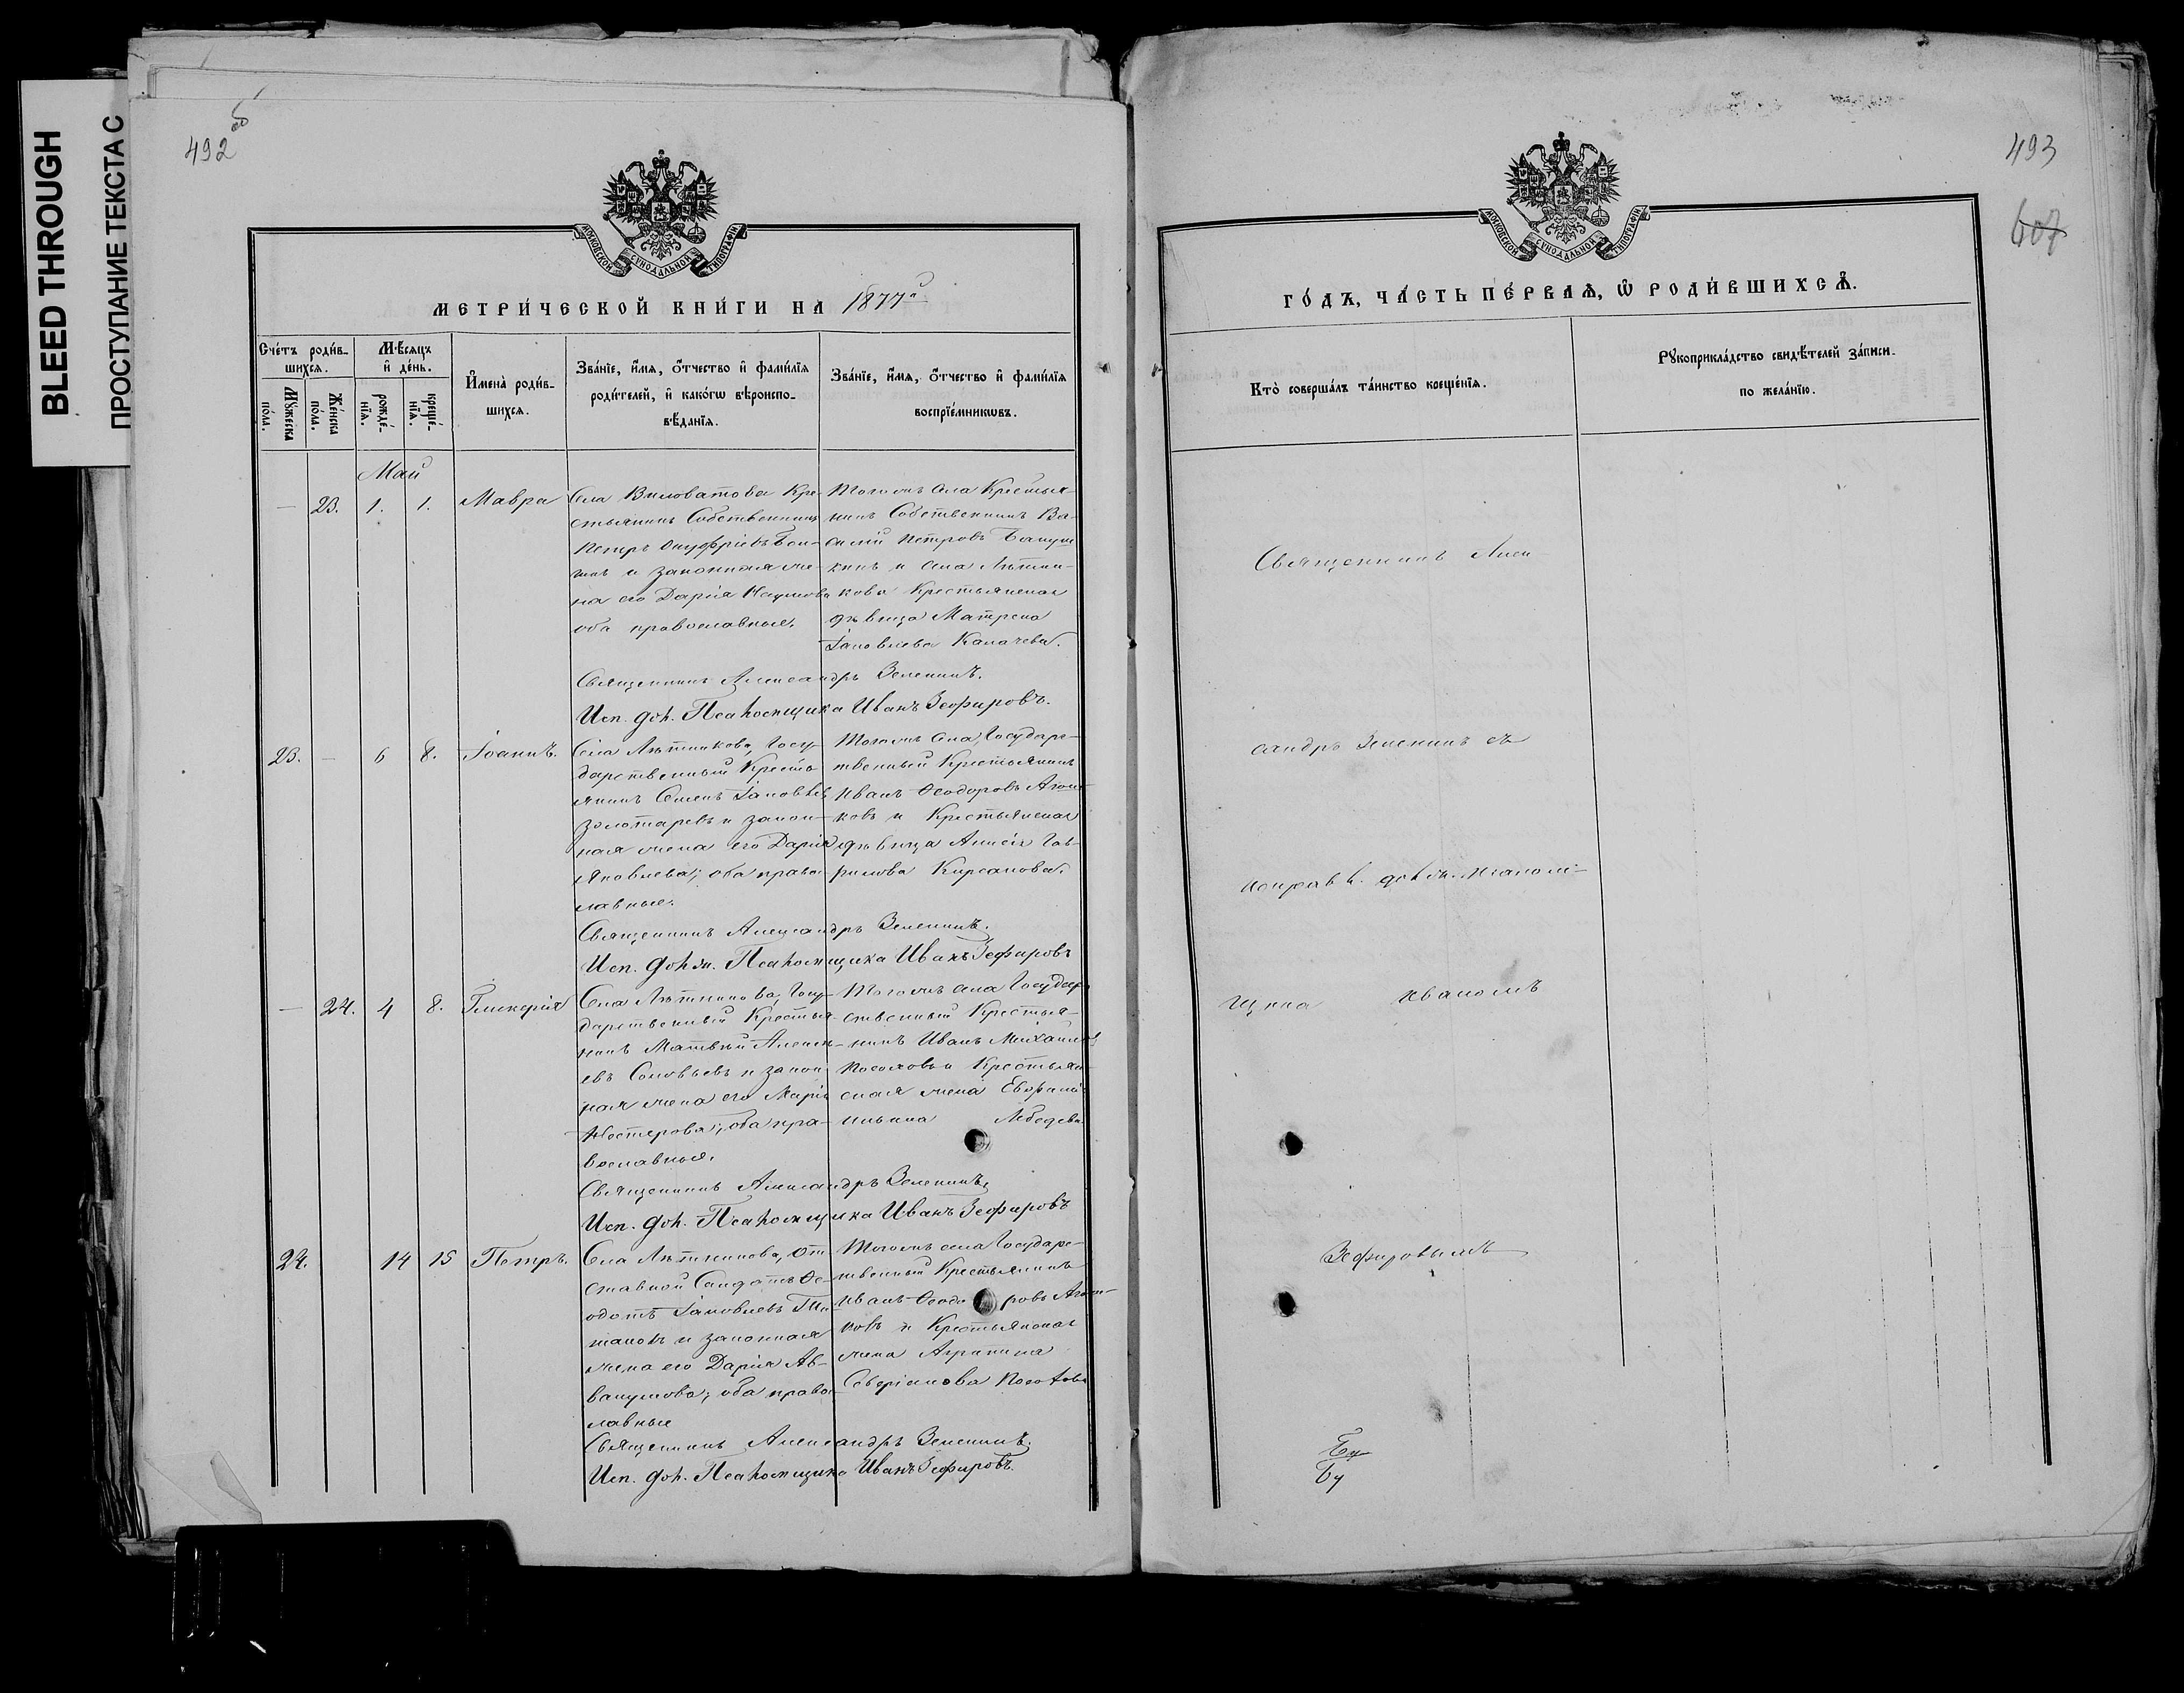 BLEED THROUGH
ПРОСТУПАНИЕ ТЕКСТА С
492 об
МОСКОВСКОЙ СѴНОДАЛЬНОЙ ТИПОГРАФІИ
МЕТРИ́ЧЕСКОЙ КНИ́ГИ НА 1877й
Сче́тъ роди́в-
шихсѧ.
Мꙋ́жеска
по́ла.
Же́нска
по́ла.
Мѣ́сѧцъ
и҆ де́нь.
рожде́-
нїѧ.
креще́-
нїѧ.
И҆мена̀ роди́в-
шихсѧ.
Зва́нїе, и҆́мѧ, ѻ҆́тчество и҆ фами́лїѧ
роди́телей, и҆ како́гѡ вѣроиспо-
вѣ́данїѧ.
Зва́нїе, и҆́мѧ, ѻ҆́тчество и҆ фами́лїѧ
воспрїе́мникѡвъ.
Май
— 23. 1. 1. Мавра
Села Виловатова Кре-
стьянинъ Собственникъ
Петръ Онуфріевъ
и законная же-
на его Дарія Наумова
оба православные.
Тогожъ села Крестья-
нинъ Собственникъ Ва-
силій Петровъ
и села Лѣтни-
кова Крестьянская
дѣвица Матрена
Іаковлева Калачева.
Священникъ Александръ Зеленинъ.
Исп. дол. Псаломщика Иванъ Зефировъ.
23. — 6 8. Іоаннъ.
Села Лѣтникова, Госу-
дарственный Кресть
янинъ Семенъ Іаковлевъ
Золотаревъ и закон-
ная жена его Дарія
Яковлева; оба право-
лавные.
Тогожъ села Государс-
твенный Крестьянинъ
Иванъ Ѳеодоровъ
ковъ и Крестьянская
дѣвица Анисія Гав-
рилова Кирсанова.
Священникъ Александръ Зеленинъ.
Исп. долж. Псаломщика Иванъ Зефировъ
— 24. 4 8. Гликерія
Села Лѣтникова, Госу-
дарственный Крестья-
нинъ Матвѣй Алексѣ-
евъ Соловьевъ и закон
ная жена его Марія
Нестерова; оба пра-
вославные.
Тогожъ села Государ
ственный Крестья-
нинъ Иванъ Михайловъ
Косолов и Крестьян
ская жена
Лебедева
Священникъ Александръ Зеленинъ.
Исп. дол. Псаломщика Иванъ Зефировъ
24. 14 15 Петръ.
Села Лѣтникова, От
ставной Солдатъ Ѳе-
одотъ Іаковлевъ
и законная
жена его Дарія Ав-
вакумова; оба право-
лавные
Тогожъ села Государс-
твенный Крестьянинъ
Иванъ Ѳеодоровъ
ковъ и Крестьянская
жена Агрипина
Северіанова
Священникъ Александръ Зеленинъ.
Исп. дол. Псаломщика Иванъ Зефировъ.
493
607
МОСКОВСКОЙ СѴНОДАЛЬНОЙ ТИПОГРАФІИ
ГО́ДЪ, ЧА́СТЬ ПЕ́РВАѦ, Ѽ РОДИ́ВШИХСѦ.
Кто̀ соверша́лъ та́инство креще́нїѧ.
Рꙋкоприкла́дство свидѣ́телей за́писи
по жела́нїю.
Священникъ Алек
сандръ Зеленинъ съ
исправл. долж. псалом-
щика Иваномъ
Зефировымъ